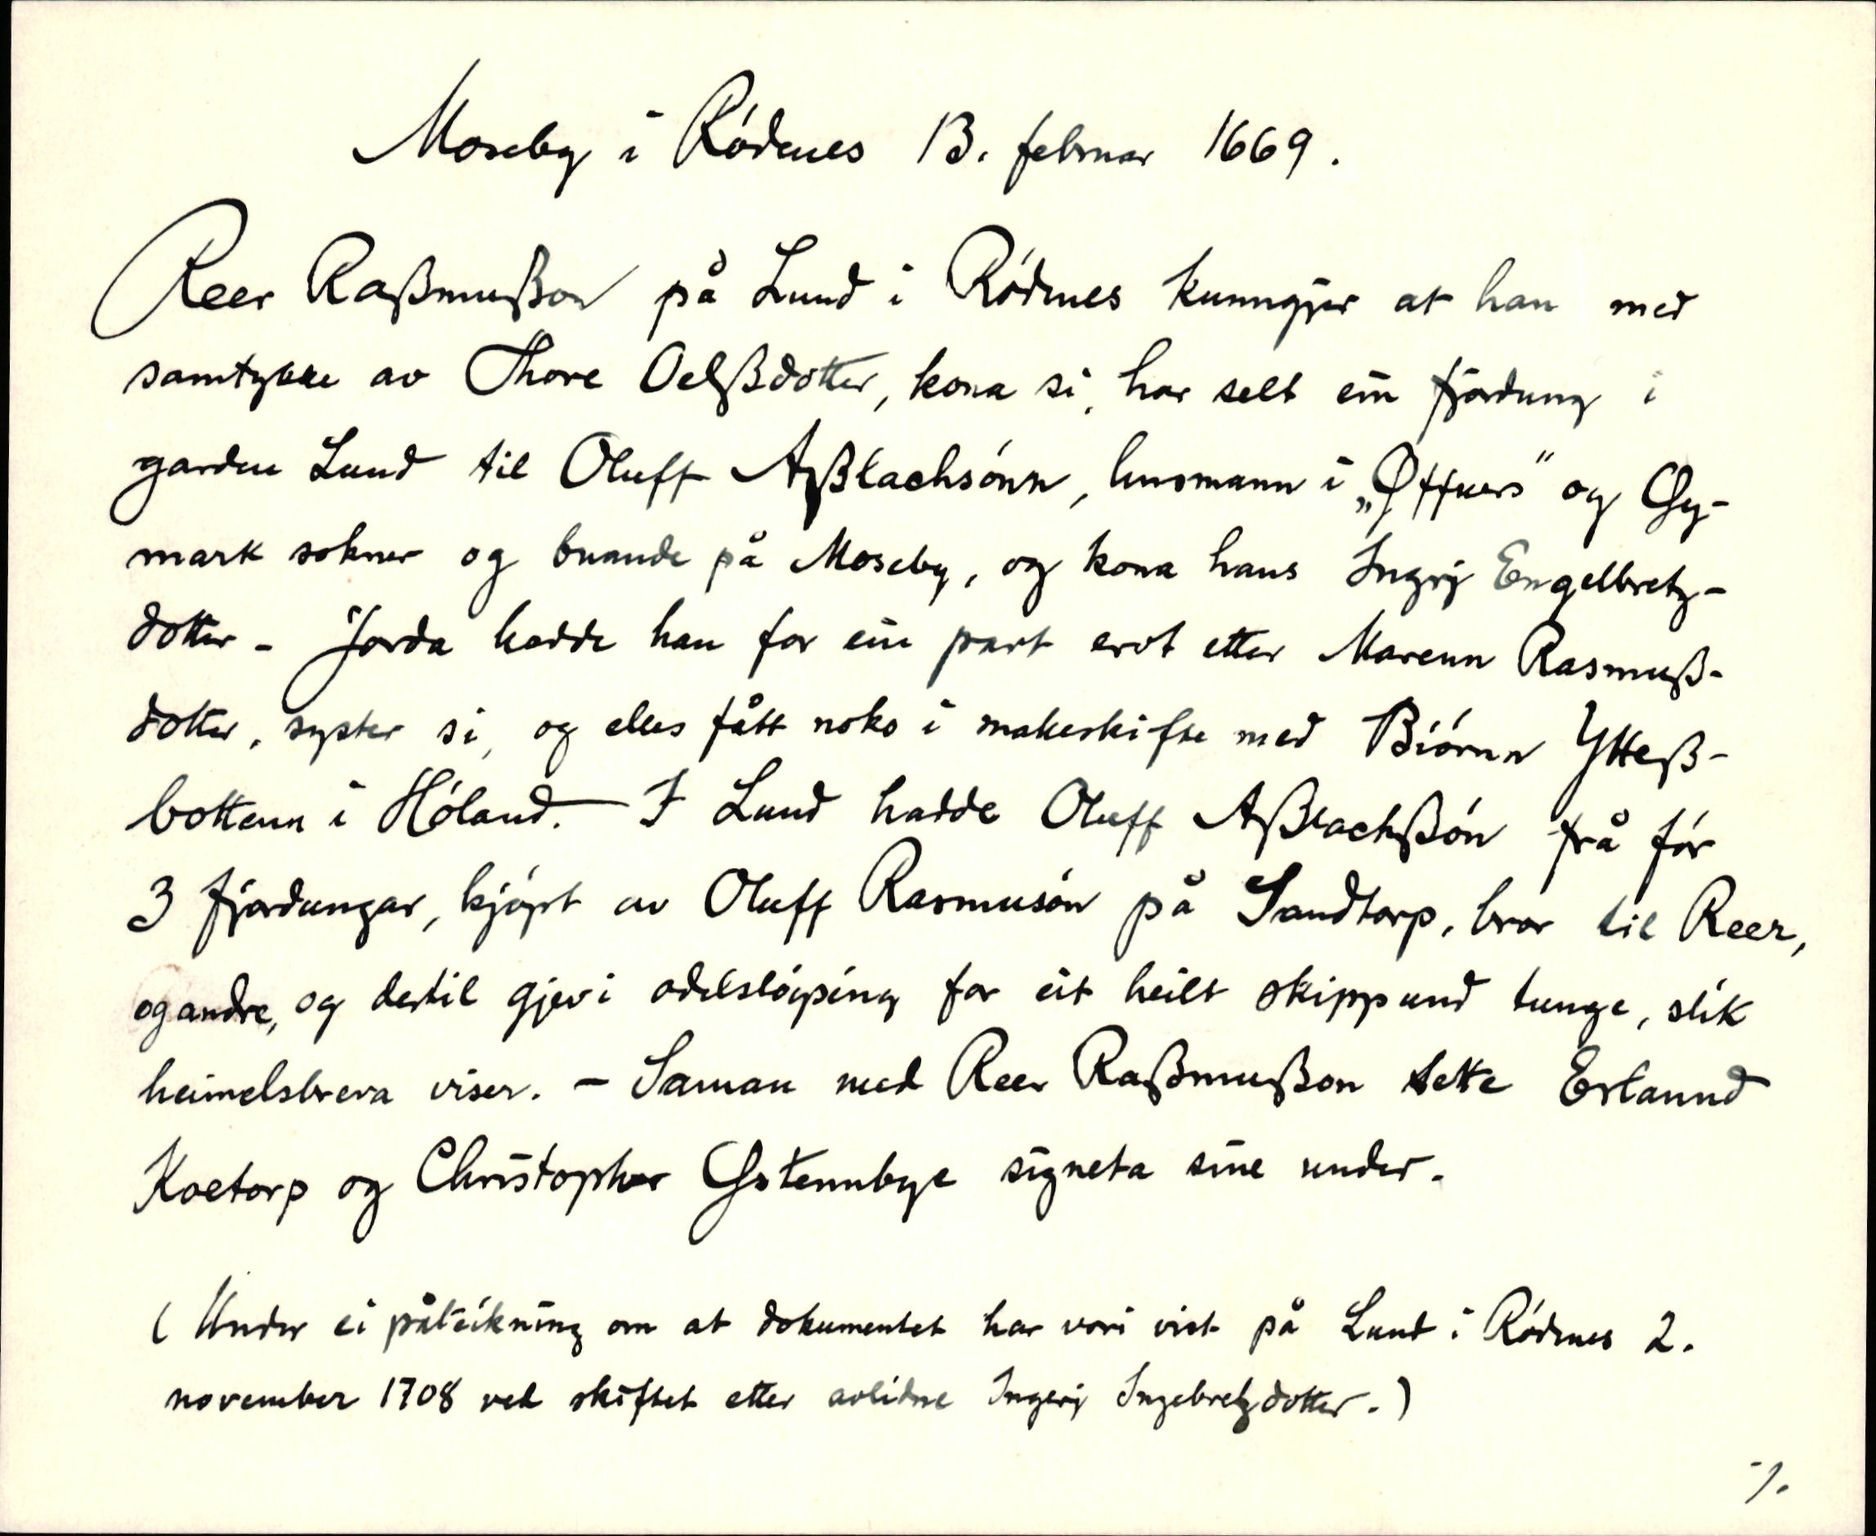 Moseby i Rødenes 13. februar 1669.
Reer Raßmußon på Lund i Rødenes kunngjer at han med
samtykke av Thore Oelßdotter, kona si, har selt ein fjórdung i
garden Lund til Oluff Aßlachsónn, husmann i „Øffuers" og Gy-
mark sokner og buande på Moseby, og kona hans Ingrj Engelbretz-
dotter - Jorda hadde han for ein part ervt etter Marenn Rasmuß-
dotter, syster si, og elles fått noko i makeskifte med Biórnn Ytteß-
bottenn i Hóland. - I Lund hadde Oluff Aßlachßón frå fór
3 fjordungar, kjópt av Oluff Rasmusón på Sandtorp, bror til Reer,
og andre, og dertil gjevi odelsløysing for eit heilt skippund tunge, slik
heimelsbreva viser. - Saman med Reer Raßmußon sette Erlannd
Koetorp og Christopher Gstennbye signeta sine under.
( Under ei påteikning om at dokumentet har vori vist på Lund i Rødenes 2.
november 1708 ved skiftet etter avlidne Ingerj Ingebretzdotter.)
./.